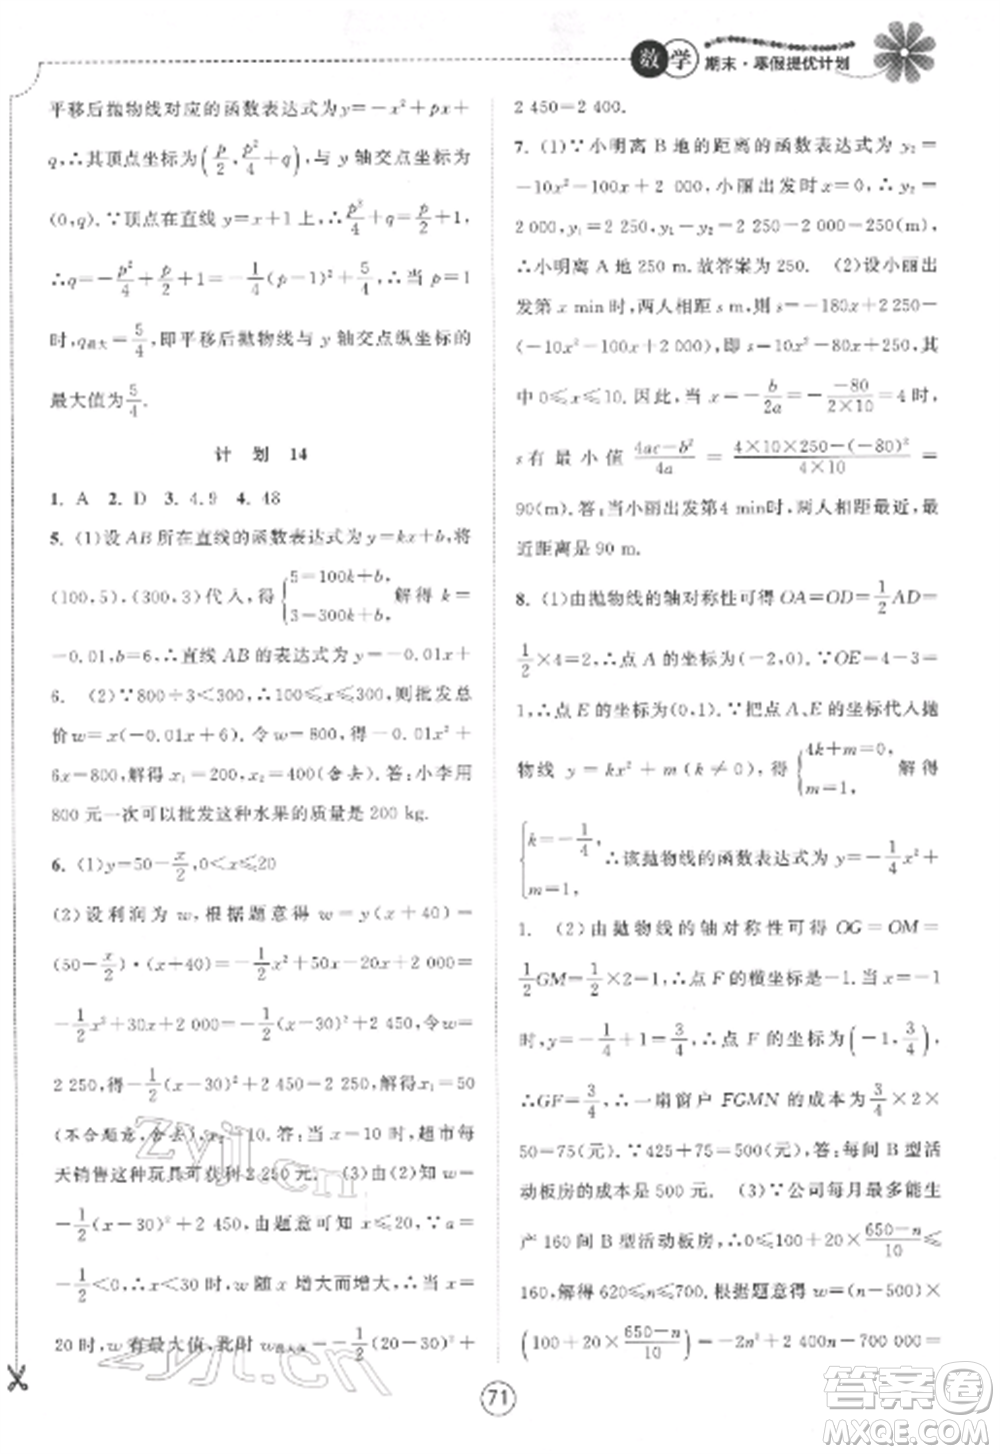 数学 期末·寒假提优计划
平移后抛物线对应的函数表达式为 y=-x²+px+
q,∴其顶点坐标为(p/2, p²/4+q),与 y 轴交点坐标为
(0,q).∵顶点在直线 y=x+1 上,∴p²/4+q=p/2+1,
∴q=-p²/4+p/2+1=-1/4(p-1)²+5/4,∴当 p=1
时,q最大=5/4,即平移后抛物线与 y 轴交点纵坐标的
最大值为5/4.
计 划 14
1. A 2. D 3. 4.9 4. 48
5. (1)设 AB 所在直线的函数表达式为 y=kx+b,将
(100,5),(300,3)代入,得{5=100k+b, 3=300k+b,解得 k=
-0.01,b=6,∴直线 AB 的表达式为 y=-0.01x+
6. (2)∵800÷3<300,∴100≤x≤300,则批发总
价 w=(-0.01x+6)x.令 w=800,得(-0.01x+
6)x=800,解得 x₁=200,x₂=400(舍去).答:小李用
800 元一次可以批发这种水果的质量是 200 kg.
6. (1)y=50-x/2,0<x≤20
(2)设利润为 w,根据题意得 w=y(x+40)=
(50-x/2)·(x+40)=-1/2x²+50x-20x+2 000=
-1/2x²+30x+2 000=-1/2(x-30)²+2 450,令 w=
2 250,得-1/2(x-30)²+2 450=2 250,解得 x₁=50
(不合题意,舍去),x₂=10.答:当 x=10 时,超市每
天销售这种玩具可获利 2 250 元. (3)由(2)知 w=
-1/2(x-30)²+2 450,由题意可知 x≤20,∵a=
-1/2<0,∴当 x<30 时,w 随 x 增大而增大,∴当 x=
20 时,w 有最大值,此时 w最大值=-1/2(20-30)²+
2 450=2 400.
7. (1)∵小明离 B 地的距离的函数表达式为 y₂=
-10x²-100x+2 000,小丽出发时 x=0,∴y₂=
2 000,y₁=2 250,∴y₁-y₂=2 250-2 000=250(m)
∴小明离 A 地 250 m.故答案为 250. (2)设小丽出
发第 x min时,两人相距 s m,则 s=-180x+2 250-
(-10x²-100x+2 000),即 s=10x²-80x+250,其
中 0≤x≤10.因此,当 x=-b/2a=-(-80)/(2×10)=4 时,
s 有最小值(4ac-b²)/4a=(4×10×250-(-80)²)/(4×10)=
90(m).答:小丽出发第 4 min时,两人相距最近,最
近距离是 90 m.
8. (1)由抛物线的轴对称性可得 OA=OD=1/2AD=
1/2×4=2,∴点 A 的坐标为(-2,0).∵OE=4-3=
1,∴点 E 的坐标为(0,1).∵把点 A、E 的坐标代入抛
物线 y=kx²+m(k≠0),得{4k+m=0, m=1,解得
{k=-1/4, m=1,∴该抛物线的函数表达式为 y=-1/4x²+
1. (2)由抛物线的轴对称性可得 OG=OM=
1/2GM=1/2×2=1,∴点 F 的横坐标是-1.当 x=-1
时,y=-1/4+1=3/4,∴点 F 的坐标为(-1, 3/4),
∴GF=3/4,∴一扇窗户 FGMN 的成本为3/4×2×
50=75(元),∵425+75=500(元),答:每间 B 型活
动板房的成本是 500 元. (3)∵公司每月最多能生
产 160 间 B 型活动板房,∴0≤100+20×(650-n)/10≤
160,解得 620≤n≤700.根据题意得 w=(n-500)×
(100+20×(650-n)/10)=-2n²+2 400n-700 000=
71
zyjl.cn
答案圈
MXQE.COM